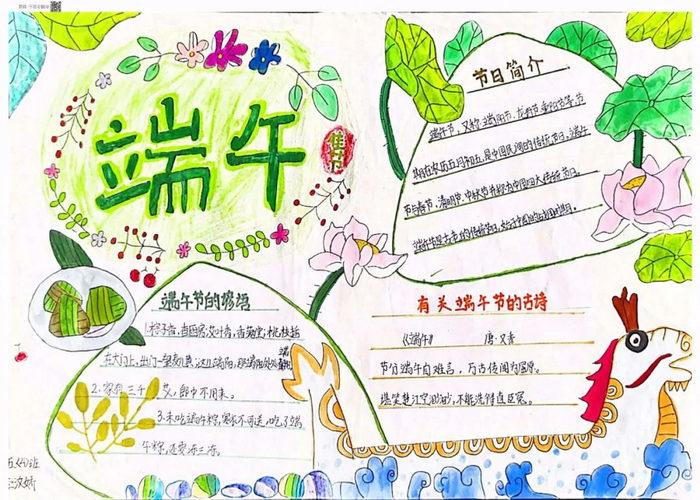 端午
佳节
节日简介
端午节，又称端阳节、龙舟节、重五节等，节
期在农历五月初五，是中国民间的传统节日。端午
节与春节、清明节、中秋节并称为中国四大传统节日。
端午节是古老的传统节日，始于中国的
端午节的谚语
1.粽子香，香厨房，艾叶香，香满堂，桃枝插
在大门上，出门一望麦儿黄，这儿端阳，那儿端阳处处端阳
2.家有三年艾，郎中不用来。
3.未吃端午粽，寒衣不可送，吃了端
午粽，还要冻三冻。
有关端午节的古诗
《端午》 唐·文秀
节分端午自谁言，万古传闻为屈原。
堪笑楚江空渺渺，不能洗得直臣冤。